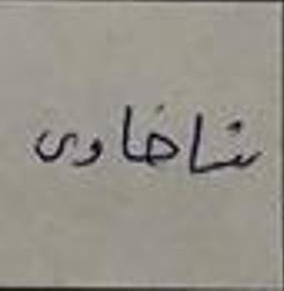 شاخاوی